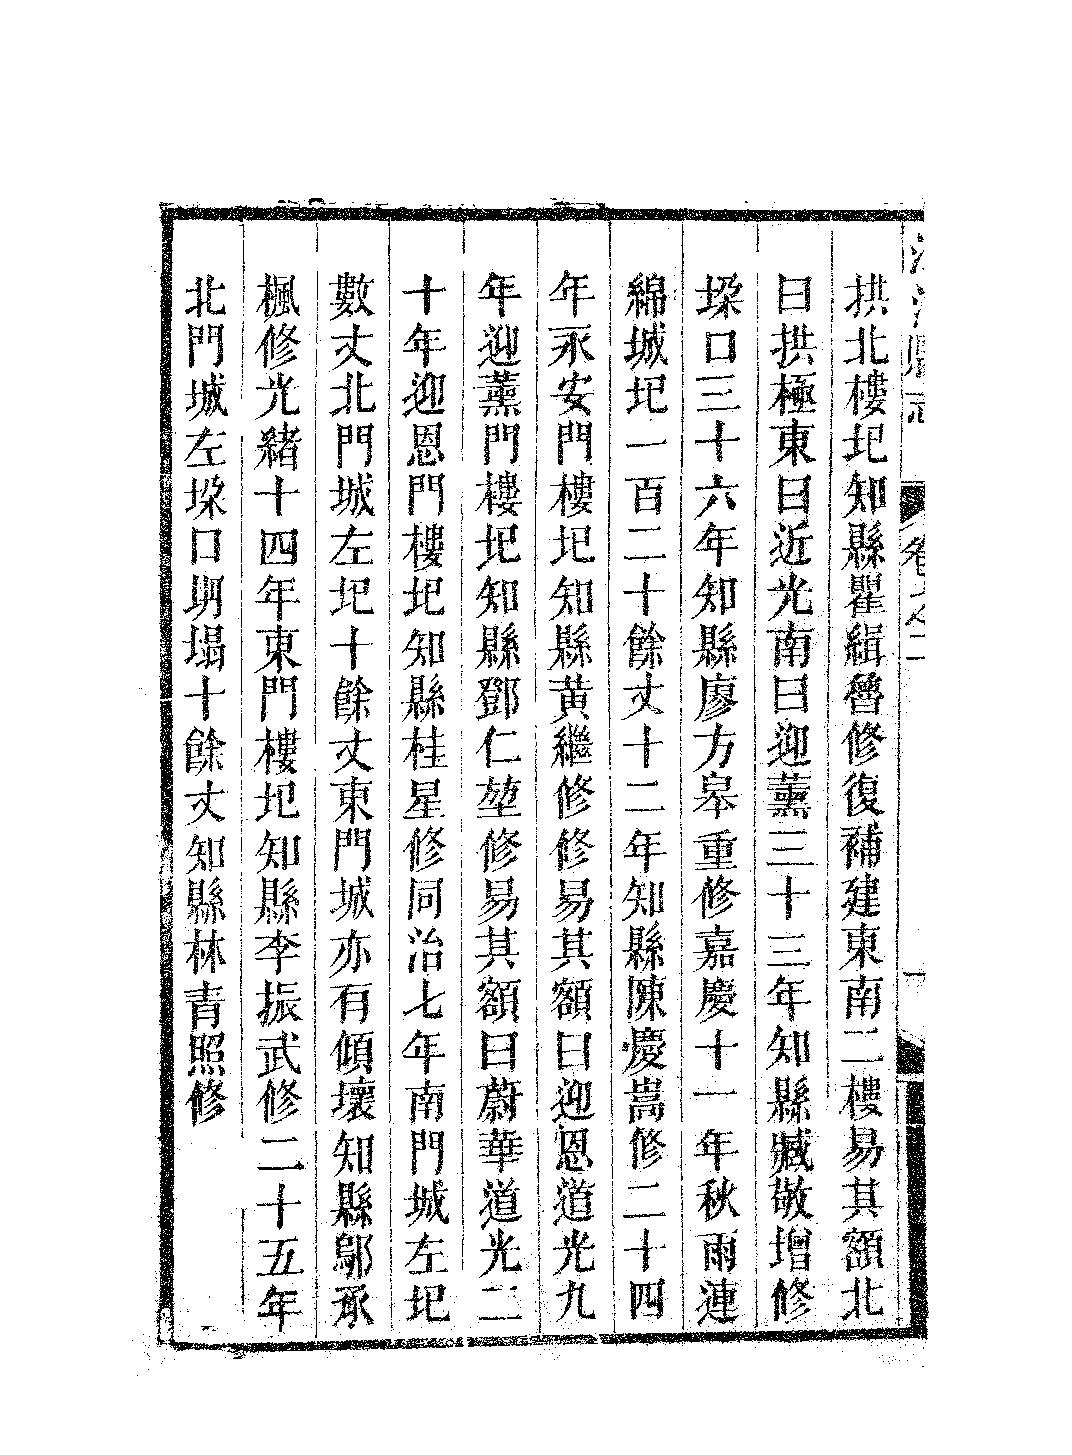 拱北樓圮知縣瞿緝魯修復補建東南二樓易其額北
曰拱極東曰近光南曰迎薰三十三年知縣臧敬增修
垛口三十六年知縣廖方皋重修嘉慶十一年秋雨連
綿城圮一百二十餘丈十二年知縣陳慶嵩修二十四
年永安門樓圮知縣黃繼修修易其額曰迎恩道光九
年迎薰門樓圮知縣鄧仁堃修易其額曰蔚華道光二
十年迎恩門樓圮知縣桂星修同治七年南門城左圮
數丈北門城左圮十餘丈東門城亦有傾壞知縣鄔承
楓修光緒十四年東門樓圮知縣李振武修二十五年
北門城左垛口坍塌十餘丈知縣林青照修